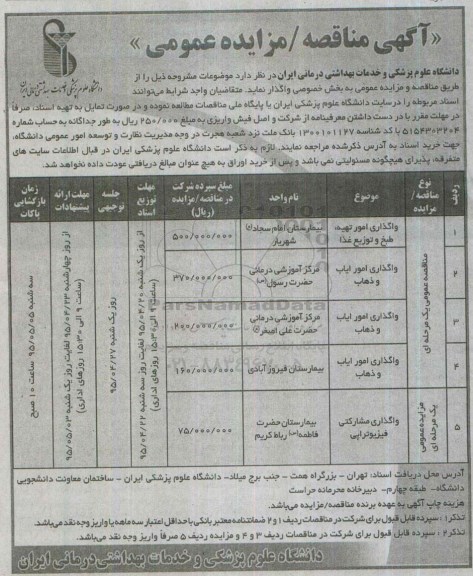 «آگهی مناقصه/مزایده عمومی»
دانشگاه علوم پزشکی و خدمات بهداشتی درمانی ایران
دانشگاه علوم پزشکی و خدمات بهداشتی درمانی ایران در نظر دارد موضوعات مشروحه ذیل را از
طریق مناقصه و مزایده عمومی به بخش خصوصی واگذار نماید. متقاضیان واجد شرایط می‌توانند
اسناد مربوطه را درسایت دانشگاه علوم پزشکی ایران یا پایگاه ملی مناقصات مطالعه نموده و در صورت تمایل به تهیه اسناد، صرفاً
در مهلت مقرر با در دست داشتن معرفینامه از شرکت و اصل فیش واریزی به مبلغ ۲۵۰/۰۰۰ ریال به طور جداگانه به حساب شماره
۵۱۵۴۳۰۳۲۰۴ با کد شناسه ۱۳۰۰۱۰۱۱۲۷ بانک ملت نزد شعبه هجرت در وجه مدیریت نظارت و توسعه امور عمومی دانشگاه،
جهت خرید اسناد به آدرس ذکرشده مراجعه نمایند. لازم به ذکر است دانشگاه علوم پزشکی ایران در قبال اطلاعات سایت های
متفرقه، پذیرای هیچگونه مسئولیتی نمی باشد و پس از خرید اوراق به هیچ عنوان مبالغ دریافتی عودت داده نخواهد شد.
ردیف
نوع مناقصه/مزایده
موضوع
نام واحد
مبلغ سپرده شرکت در مناقصه/مزایده (ریال)
مهلت توزیع اسناد
جلسه توجیهی
مهلت ارائه پیشنهادات
زمان بازگشایی پاکات
۱ واگذاری امور تهیه، طبخ و توزیع غذا بیمارستان امام سجاد(ع) شهریار ۵۰۰/۰۰۰/۰۰۰
۲ واگذاری امور ایاب و ذهاب مرکز آموزشی درمانی حضرت رسول(ص) ۳۷۰/۰۰۰/۰۰۰
۳ واگذاری امور ایاب و ذهاب مرکز آموزشی درمانی حضرت علی اصغر(ع) ۲۰۰/۰۰۰/۰۰۰
۴ واگذاری امور ایاب و ذهاب بیمارستان فیروزآبادی ۱۶۰/۰۰۰/۰۰۰
۵ واگذاری مشارکتی فیزیوتراپی بیمارستان حضرت فاطمه(س) رباط کریم ۷۵/۰۰۰/۰۰۰
مناقصه عمومی یک مرحله ای
مزایده عمومی یک مرحله ای
از روز یک شنبه ۹۵/۰۴/۲۰ لغایت روز سه شنبه ۹۵/۰۴/۲۲
(ساعت ۹ الی ۱۵:۳۰ روزهای اداری)
روز یک شنبه ۹۵/۰۴/۲۷
از روز چهارشنبه ۹۵/۰۴/۲۳ لغایت روز یک شنبه ۹۵/۰۵/۰۳
(ساعت ۹ الی ۱۵:۳۰ روزهای اداری)
سه شنبه ۹۵/۰۵/۰۵ ساعت ۱۰ صبح
ParsNamadData
آدرس محل دریافت اسناد: تهران - بزرگراه همت - جنب برج میلاد- دانشگاه علوم پزشکی ایران - ساختمان معاونت دانشجویی
دانشگاه- طبقه چهارم- دبیرخانه محرمانه حراست
هزینه چاپ آگهی به عهده برنده مناقصه/مزایده می‌باشد.
تذکر۱: سپرده قابل قبول برای شرکت در مناقصات ردیف ۱ و ۲ ضمانتنامه معتبر بانکی با حداقل اعتبار سه ماهه یا واریز وجه نقد می‌باشد.
تذکر۲: سپرده قابل قبول برای شرکت در مناقصات ردیف ۳ و ۴ و مزایده ردیف ۵ صرفاً واریز وجه نقد می‌باشد.
دانشگاه علوم پزشکی و خدمات بهداشتی درمانی ایران